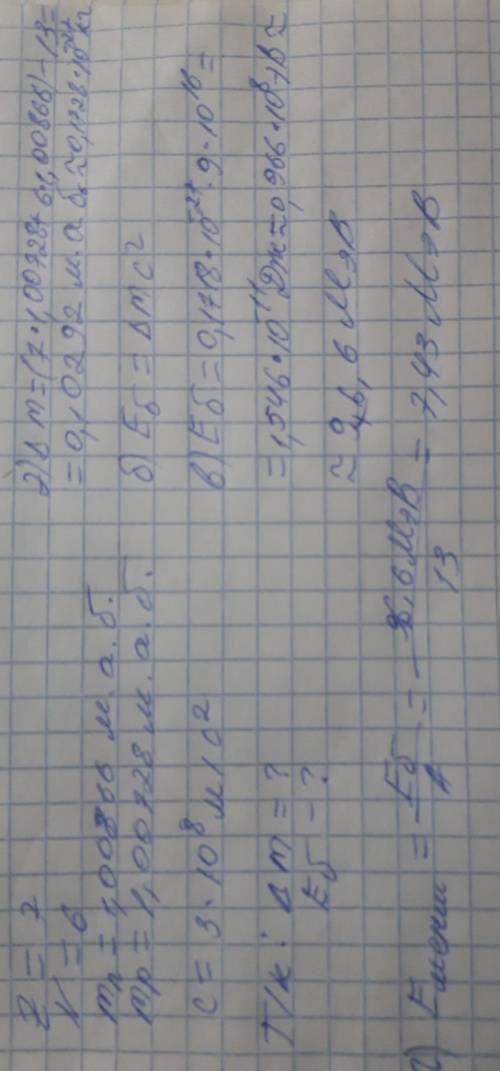 Z = 7
N = 6
mn = 1,00866 м.а.б.
mp = 1,00728 м.а.б.
c = 3·10⁸ м/с²
Т/к: Δm = ?
Eб - ?
а) Δm = (7·1,00728 + 6·1,00866) - 13 =
= 0,10292 м.а.б. ≈ 0,1728·10⁻²⁷ кг
б) Eб = Δmc²
в) Eб = 0,1718·10⁻²⁷·9·10¹⁶ =
= 1,546·10⁻¹¹ Дж ≈ 0,966·10⁸ эВ ≈
≈ 96,6 МэВ
= Eб/A = 96,6 МэВ/13 = 7,43 МэВ